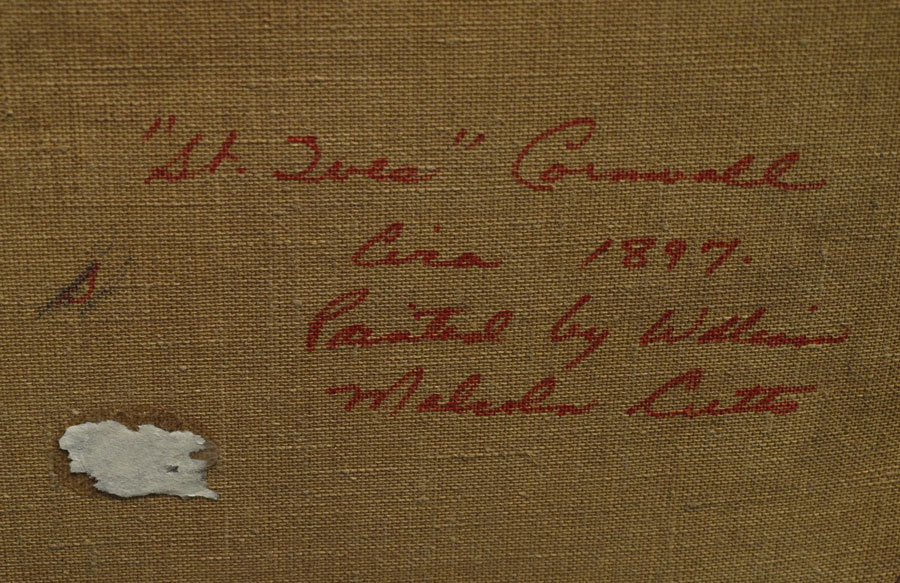 "St. Ives" Cornwall
Circa 1897.
Painted by William
Malcolm Cutts